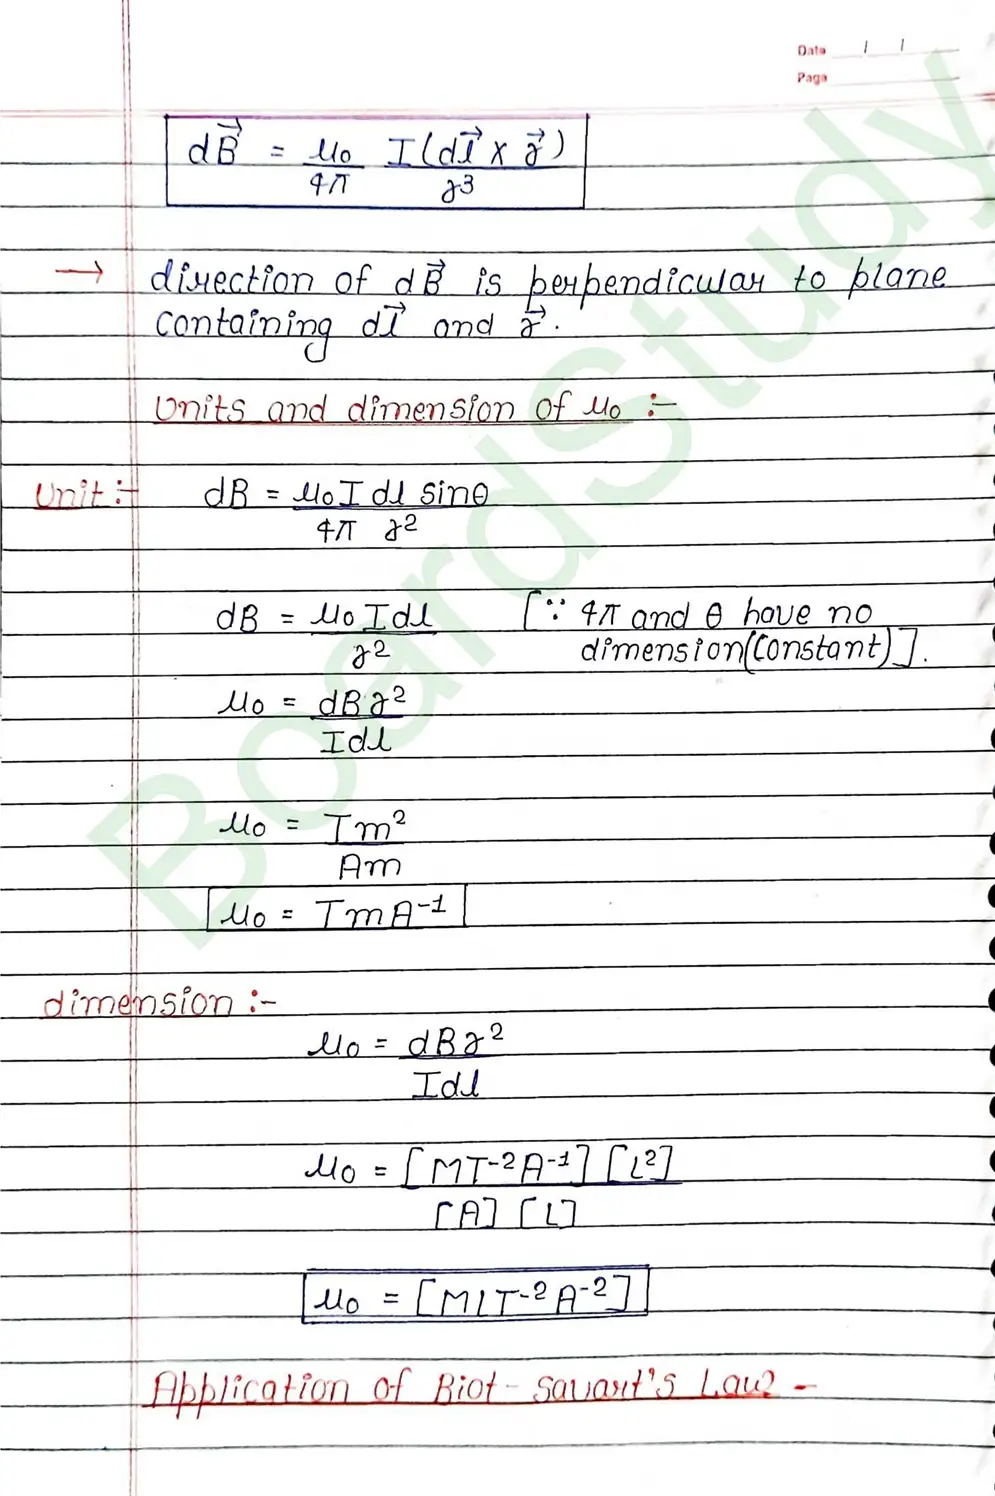 Date / /
Page
dB⃗ = μ₀/4π I(dl⃗ × r⃗)/r³
→ direction of dB⃗ is perpendicular to plane
containing dl⃗ and r⃗.
Units and dimension of μ₀ :-
Unit :- dB = μ₀ I dl sinθ / 4π r²
dB = μ₀ I dl / r² [∵ 4π and θ have no
dimension(Constant)].
μ₀ = dB r² / I dl
μ₀ = Tm² / Am
μ₀ = TmA⁻¹
dimension :-
μ₀ = dB r² / I dl
μ₀ = [MT⁻²A⁻¹] [L²] / [A] [L]
μ₀ = [MLT⁻²A⁻²]
Application of Biot-Savart's Law -
BoardStudy